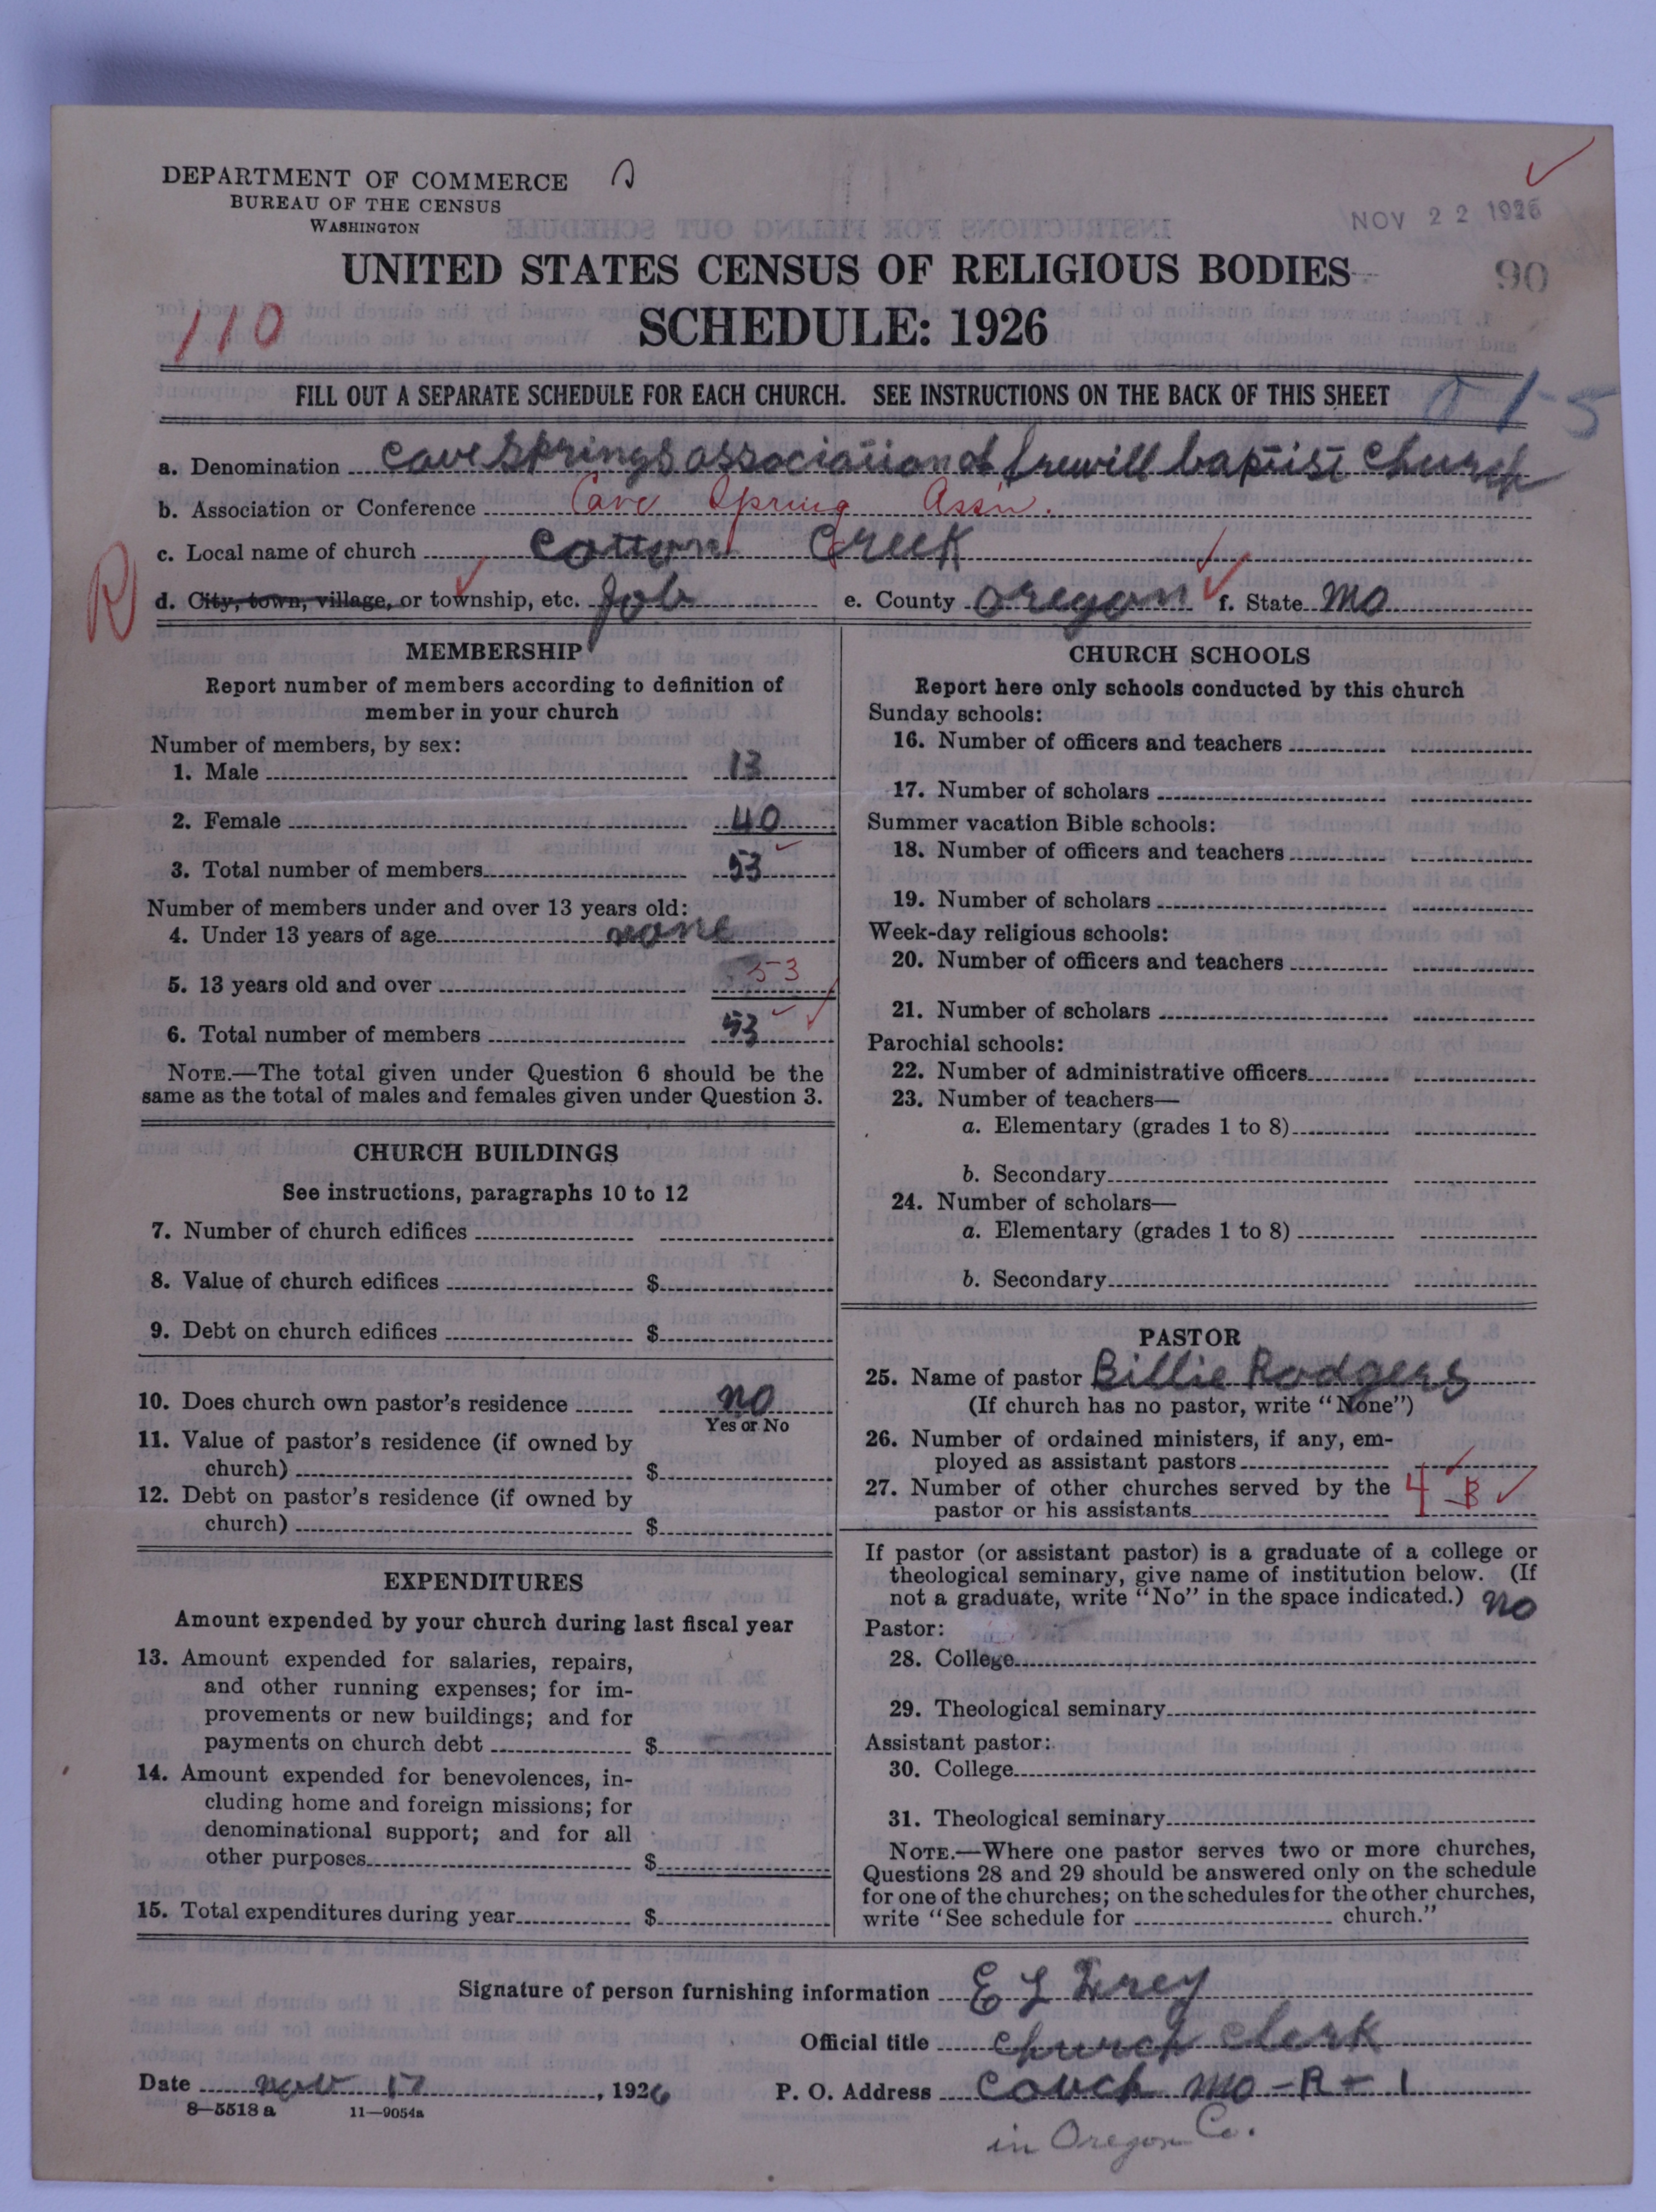 DEPARTMENT OF COMMERCE
BUREAU OF THE CENSUS
WASHINGTON
NOV 22 1926
UNITED STATES CENSUS OF RELIGIOUS BODIES
90
110
SCHEDULE: 1926
FILL OUT A SEPARATE SCHEDULE FOR EACH CHURCH. SEE INSTRUCTIONS ON THE BACK OF THIS SHEET
1-5
a. Denomination cave springs association of frewill baptist church
b. Association or Conference Cave Spring Ass'n.
c. Local name of church cotton creek
R
d. City, town, village, or township, etc. Job e. County oregon f. State mo
MEMBERSHIP
Report number of members according to definition of
member in your church
Number of members, by sex:
1. Male 13
2. Female 40
3. Total number of members 53
Number of members under and over 13 years old:
4. Under 13 years of age none
5. 13 years old and over 53
6. Total number of members 53
NOTE.—The total given under Question 6 should be the
same as the total of males and females given under Question 3.
CHURCH BUILDINGS
See instructions, paragraphs 10 to 12
7. Number of church edifices
8. Value of church edifices $
9. Debt on church edifices $
10. Does church own pastor's residence no
Yes or No
11. Value of pastor's residence (if owned by
church) $
12. Debt on pastor's residence (if owned by
church) $
EXPENDITURES
Amount expended by your church during last fiscal year
13. Amount expended for salaries, repairs,
and other running expenses; for im-
provements or new buildings; and for
payments on church debt $
14. Amount expended for benevolences, in-
cluding home and foreign missions; for
denominational support; and for all
other purposes $
15. Total expenditures during year $
CHURCH SCHOOLS
Report here only schools conducted by this church
Sunday schools:
16. Number of officers and teachers
17. Number of scholars
Summer vacation Bible schools:
18. Number of officers and teachers
19. Number of scholars
Week-day religious schools:
20. Number of officers and teachers
21. Number of scholars
Parochial schools:
22. Number of administrative officers
23. Number of teachers—
a. Elementary (grades 1 to 8)
b. Secondary
24. Number of scholars—
a. Elementary (grades 1 to 8)
b. Secondary
PASTOR
25. Name of pastor Billie Rodgers
(If church has no pastor, write "None")
26. Number of ordained ministers, if any, em-
ployed as assistant pastors
27. Number of other churches served by the
pastor or his assistants 4
If pastor (or assistant pastor) is a graduate of a college or
theological seminary, give name of institution below. (If
not a graduate, write "No" in the space indicated.) no
Pastor:
28. College
29. Theological seminary
Assistant pastor:
30. College
31. Theological seminary
NOTE.—Where one pastor serves two or more churches,
Questions 28 and 29 should be answered only on the schedule
for one of the churches; on the schedules for the other churches,
write "See schedule for church."
Signature of person furnishing information E L
Official title church clerk
Date nov 17, 1926 P. O. Address couch mo-R-1
8-5518 a 11-9054a
in Oregon Co.